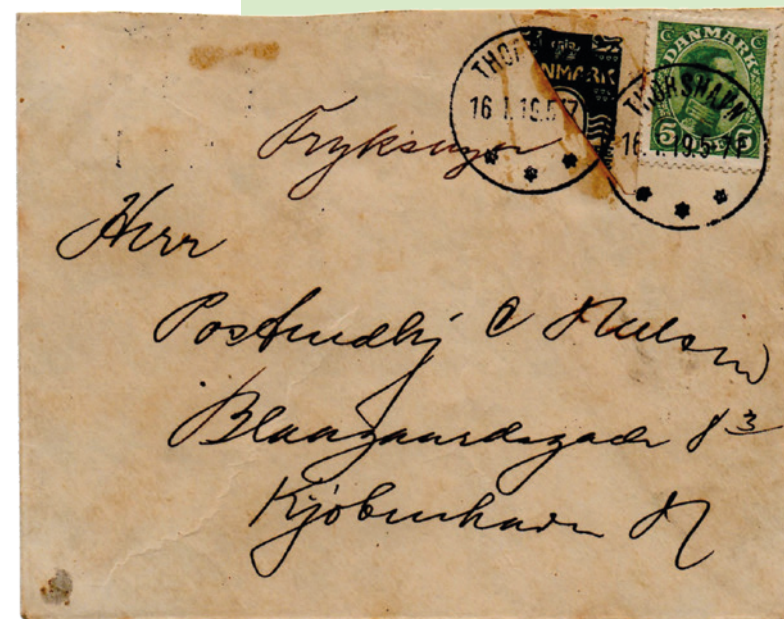 THO
NMARK
16.1.19.5-7
DANMARK
5 5
THORSHAVN
16.1.19.5-7 F
Tryksager
Herr
Postindbj C Nielsen
Blaagaardsgade 8 3
Kjöbenhavn N